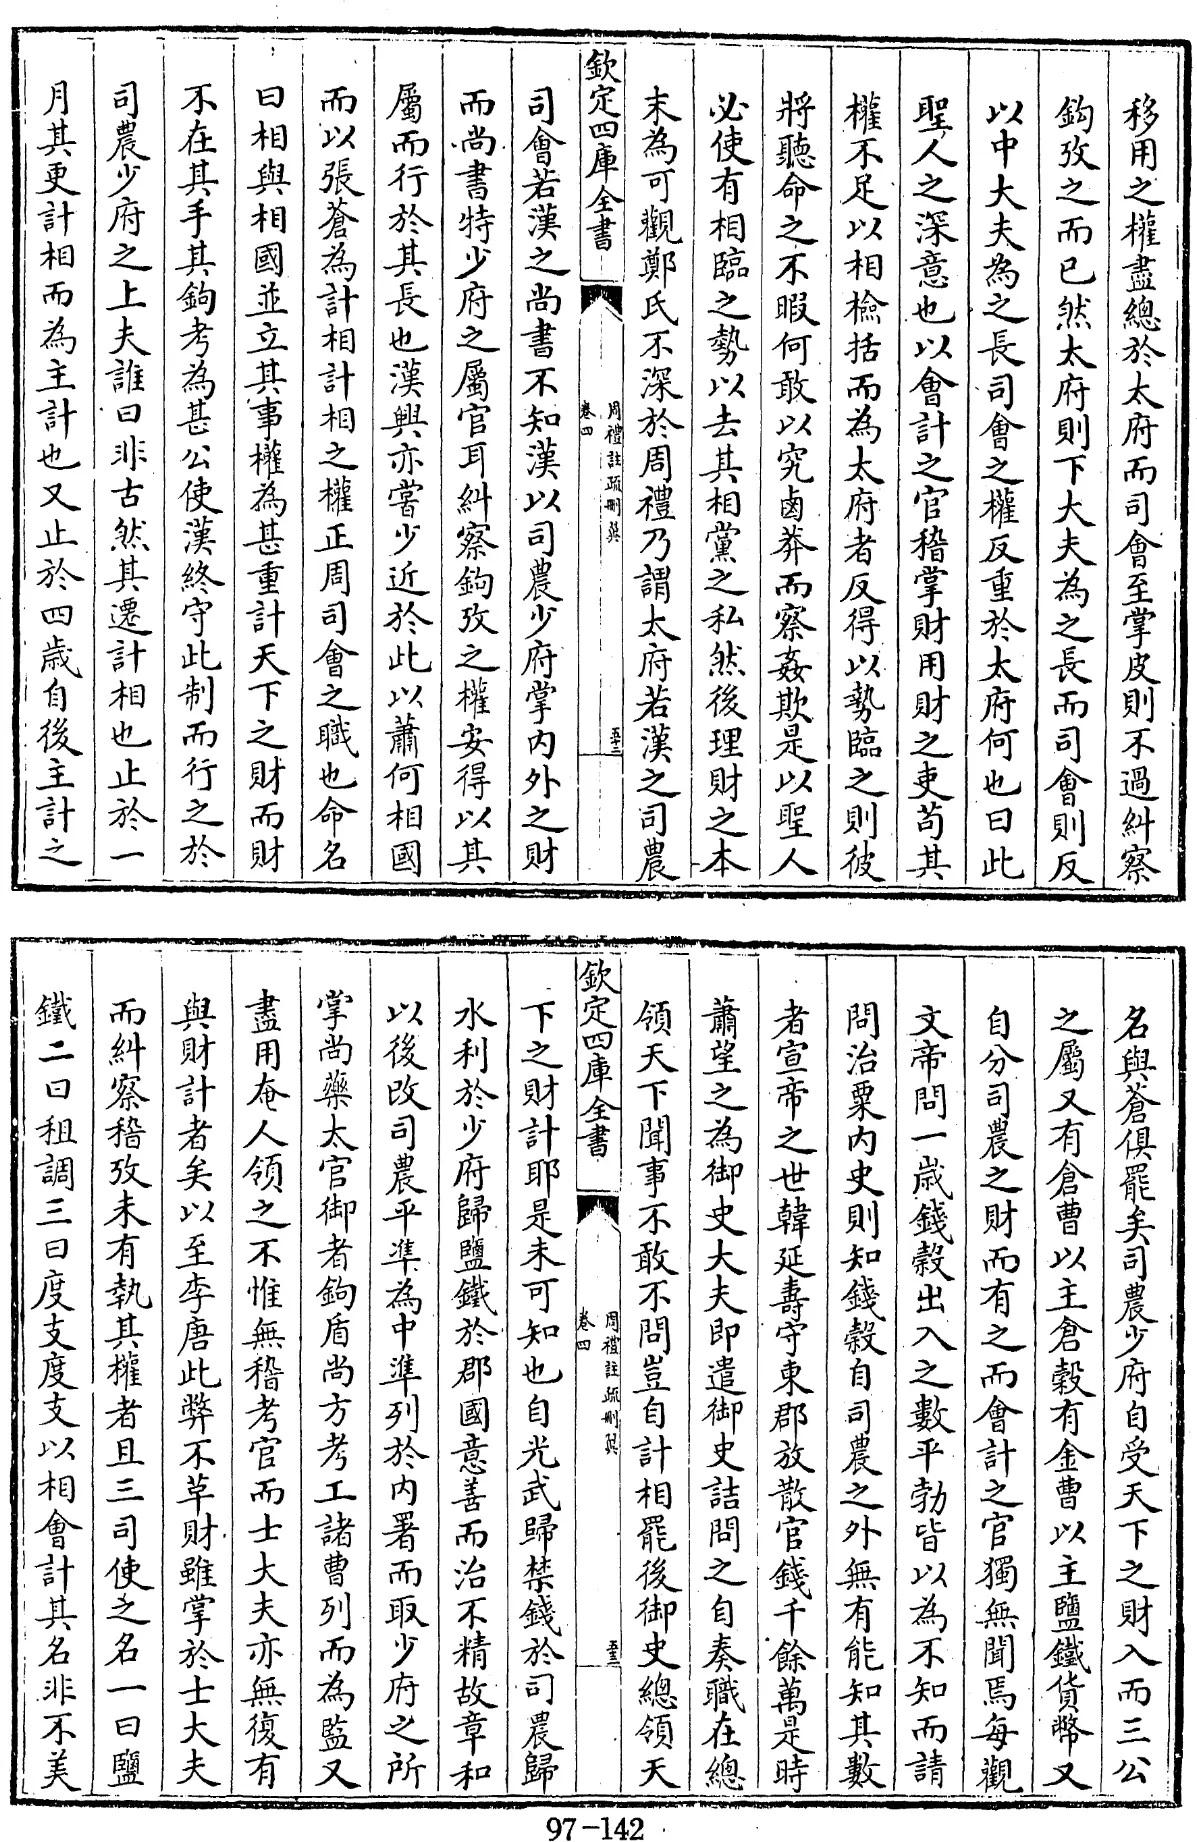 移用之權盡總於太府而司會至掌皮則不過糾察
鈎攷之而已然太府則下大夫為之長而司會則反
以中大夫為之長司會之權反重於太府何也曰此
聖人之深意也以會計之官稽掌財用財之吏苟其
權不足以相檢括而為太府者反得以勢臨之則彼
將聽命之不暇何敢以究鹵莽而察姦欺是以聖人
必使有相臨之勢以去其相黨之私然後理財之本
末為可觀鄭氏不深於周禮乃謂太府若漢之司農
欽定四庫全書
周禮註疏刪翼
卷四
五十二
司會若漢之尚書不知漢以司農少府掌內外之財
而尚書特少府之屬官耳糾察鈎攷之權安得以其
屬而行於其長也漢興亦嘗少近於此以蕭何相國
而以張蒼為計相計相之權正周司會之職也命名
曰相與相國並立其事權為甚重計天下之財而財
不在其手其鈎考為甚公使漢終守此制而行之於
司農少府之上夫誰曰非古然其遷計相也止於一
月其更計相而為主計也又止於四歲自後主計之
名與蒼俱罷矣司農少府自受天下之財入而三公
之屬又有倉曹以主倉穀有金曹以主鹽鐵貨幣又
自分司農之財而有之而會計之官獨無聞焉每觀
文帝問一歲錢穀出入之數平勃皆以為不知而請
問治粟內史則知錢穀自司農之外無有能知其數
者宣帝之世韓延壽守東郡放散官錢千餘萬是時
蕭望之為御史大夫即遣御史詰問之自奏職在總
領天下聞事不敢不問豈自計相罷後御史總領天
欽定四庫全書
周禮註疏刪翼
卷四
五十三
下之財計耶是未可知也自光武歸禁錢於司農歸
水利於少府歸鹽鐵於郡國意善而治不精故章和
以後改司農平準為中準列於內署而取少府之所
掌尚藥太官御者鈎盾尚方考工諸曹列而為監又
盡用奄人領之不惟無稽考官而士大夫亦無復有
與財計者矣以至李唐此弊不革財雖掌於士大夫
而糾察稽攷未有執其權者且三司使之名一曰鹽
鐵二曰租調三曰度支度支以相會計其名非不美
97-142